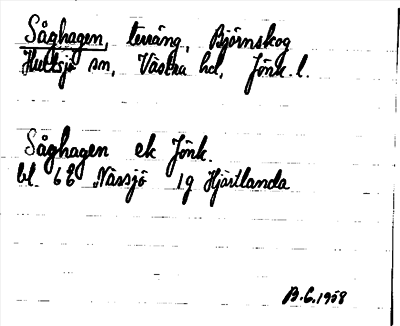 Såghagen, terräng, Björnskog
Hultsjö sn, Västra hd, Jönk. l.
Såghagen ek Jönk.
bl. 6E Nässjö 1g Hjärtlanda
B.G. 1958